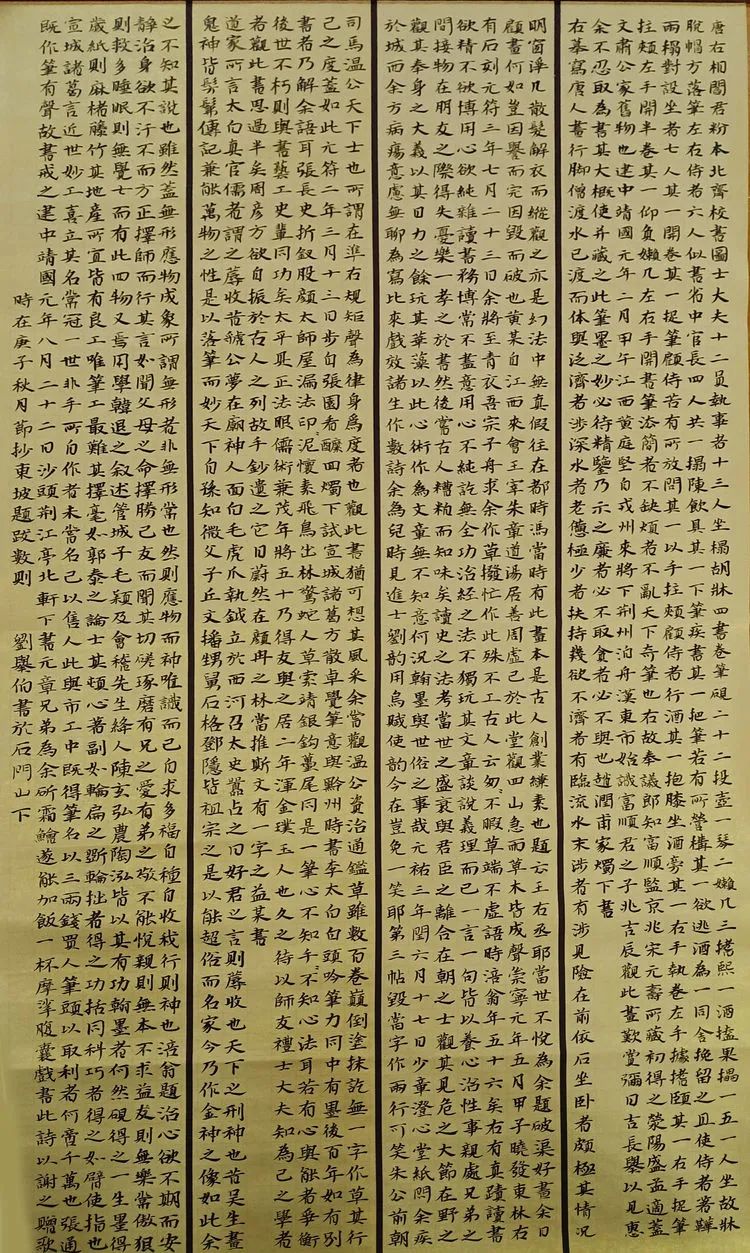 唐右相閻君粉本北齊校書圖士大夫十二員執事者十三人坐榻胡牀四書卷筆硯二十二投壺一琴二嬾几三搘熙一酒榼果榻一五一人坐故牀
脫帽方落筆左右侍者六人似書省中官長四人共一榻陳飲具其一下筆疾書其一把筆若有所營構其一欲逃酒為一同舍挽留之且使侍者著鞾
兩榻對設坐者七人其一開卷其一捉筆顧侍若有所放問其一以手拄頰顧侍者行酒其一抱膝坐酒旁其一右手執卷左手據搘頤其一右手捉筆
拄頰左手開半卷其一仰負嬾几左右手開書筆添簡者不缺煩者不亂天下奇筆也右故奉議郎知富順監京兆宋元壽所藏初得之滎陽盛孟適蓋
文肅公家舊物也建中靖國元年二月甲午江西黃庭堅自戎州來將下荊州泊舟漢東市始識富順君之子兆吉辰觀此畫歎賞彌日吉長舉以見惠
余不忍取為書其大概使并藏之此筆墨之妙必待精鑒乃示之廉者必不取貪者必不與也趙潤甫家燭下書
右摹寫唐人畫行腳僧渡水已渡而體與泛濟者涉深水者老憊極少者扶持幾欲不濟者有臨流水未涉者有涉見險在前依石坐卧者頗極其情況
明窗淨几散髮解衣而縱觀之亦是幻法中無真假往在都時馮當時有此畫本是古人創業練素也題云王右丞耶當世不悅為余題破渠好畫余曰
顧畫何如豈因譽而完因毀而破也黃某自江西來會王宰朱章道湯居善周虛己於此堂觀四山急雨草木皆成聲崇寧元年五月甲子曉發東林右
有石刻元符三年七月二十三日余將至青衣吾宗子舟求余作草撥忙作此殊不工古人云匆匆不暇草端不虛語時涪翁年五十六矣右有真蹟讀書
欲精不欲博用心欲純雜讀書務博常不盡意用心不純訖無全功治經之法不獨玩其文章談說義理而已一言一句皆以養心治性事親處兄弟之
間接物在朋友之際得失憂樂一孝之於書然後嘗古人糟粕而知味矣讀史之法考當世之盛衰與君臣之離合在朝之士觀其見危之大節在野之
觀其奉身之大義以其日力之餘玩其華藻以此心術作為文章無不知意何況翰墨與世俗之事哉元祐三年閏六月十七日少章澄心堂紙問余疾
於城而余方病瘍意慮無聊為寫比來戲效諸生作數詩余為兒時見進士劉韵用烏賊使韵今在豈免一笑耶第三帖毀當字作兩行可笑朱公前朝
司馬温公天下士也所謂在準右規矩聲為律身為度者也觀此書猶可想其風采余嘗觀温公資治通鑑草雖數百卷顛倒塗抹訖無一字作草其行
己之度蓋如此元符二年三月十三日步自張園看酴醿四燭下試宣城諸葛方散卓覺筆意與黔州時書李太白白頭吟筆力同中有墨後百年如有別
書者乃解余語耳張長史折釵股顏太師屋漏法印泥懷素飛鳥出林驚蛇入草索靖銀鈎蠆尾同是一筆心不知手手不知心法耳若有心與能者爭衡
後世不朽則與書藝工史輩同功矣太平真正法眼儒術兼茂年將五十乃得友與之居二年渾金璞玉人也久之待以師友禮士大夫知為己之學者
者觀此書思過半矣周彦方欲自振於古人之列故手鈔遺之它日蔚然在顏冉之林當推斯文有一字之益某書
道家所言太白真官儒者謂之蓐收昔虢公夢在廟神人面白毛虎爪執鉞立於西河召太史嚚占之曰好君之言則蓐收也天下之刑神也昔吴生畫
鬼神皆髣髴傳記兼能萬物之性是以落筆而妙天下自孫知微父子丘文播甥舅石恪鄧隱皆祖宗之是以能超俗而名家今乃作金神之像如此余
之不知其說也雖然蓋無形應物成象所謂無形者非無形常也然則應物而神唯識而已自求多福自種自收栽行則神也涪翁題治心欲不期而安
靜治身欲不汙不而方正擇師而行其言如聞父母之命擇勝己友而聞其切磋琢磨有兄之愛有弟之敬不能悅親則無本不求益友則無樂常傲狠
則救多睡眠則無覺士而有此四物又焉用學韓退之叙述管城子毛穎及會稽先生絳人陳玄弘農陶泓皆以其有功翰墨者何然硯得之一生墨得
歲紙則麻楮藤竹其地產所宜皆有良工唯筆工最難其擇毫如郭泰之論士其頓心著副如輪扁之斲輪拙者得之功括同科巧者得之如臂使指也
宣城諸葛言近世妙工喜立其名常冠一世非手所自作者未嘗名己以售人此與市工中既得筆名以三兩錢買人筆頭以取利者何啻千萬也張通
既作筆有聲故書戒之建中靖國元年八月二十二日沙頭荊江亭北軒下元章兄弟為余斫霜鱠遂能加飯一杯摩挲腹囊戲書此詩以謝之贈歌
時在庚子秋月節抄東坡題跋數則　劉興伯書於石門山下